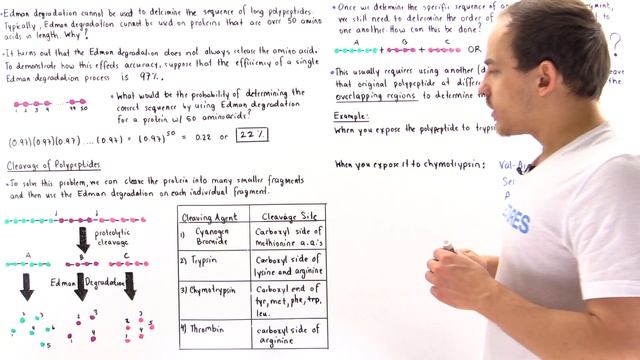 • Edman degradation cannot be used to determine the sequence of long polypeptides.
Typically, Edman degradation cannot be used on proteins that are over 50 amino
acids in length. Why?
• It turns out that the Edman degradation does not always release the amino acid.
To demonstrate how this effects accuracy, suppose that the efficiency of a single
Edman degradation process is 97%.
1 2 3 4 ... 49 50
• What would be the probability of determining the
correct sequence by using Edman degradation
for a protein w/ 50 aminoacids?
(0.97)(0.97)(0.97) .... (0.97) = (0.97)^50 = 0.22 or 22%
Cleavage of Polypeptides
• To solve this problem, we can cleave the protein into many smaller fragments
and then use the Edman degradation on each individual fragment.
proteolytic
cleavage
A B C
Edman Degradation
Cleaving Agent Cleavage Site
1) Cyanogen Bromide Carboxyl side of methionine a.a.'s
2) Trypsin Carboxyl side of lysine and arginine
3) Chymotrypsin Carboxyl end of tyr, met, phe, trp, leu.
4) Thrombin carboxyl side of arginine
• Once we determine the specific sequence of
we still need to determine the order of
one another. How can this be done?
A + B + C OR ?
• This usually requires using another
that original polypeptide at
overlapping regions to determine
Example:
When you expose the polypeptide to
When you expose it to chymotrypsin: Val-
Ser